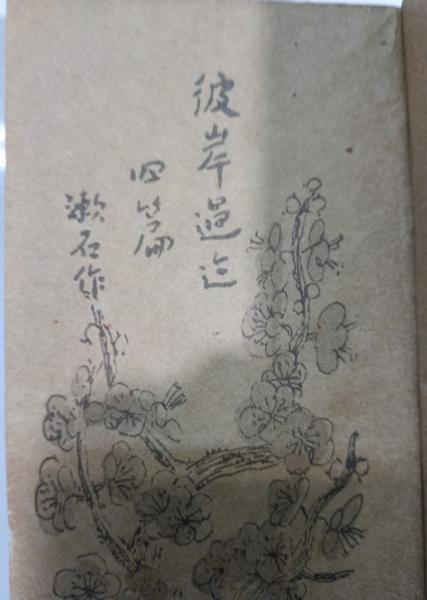 彼岸過迄
四篇
漱石作